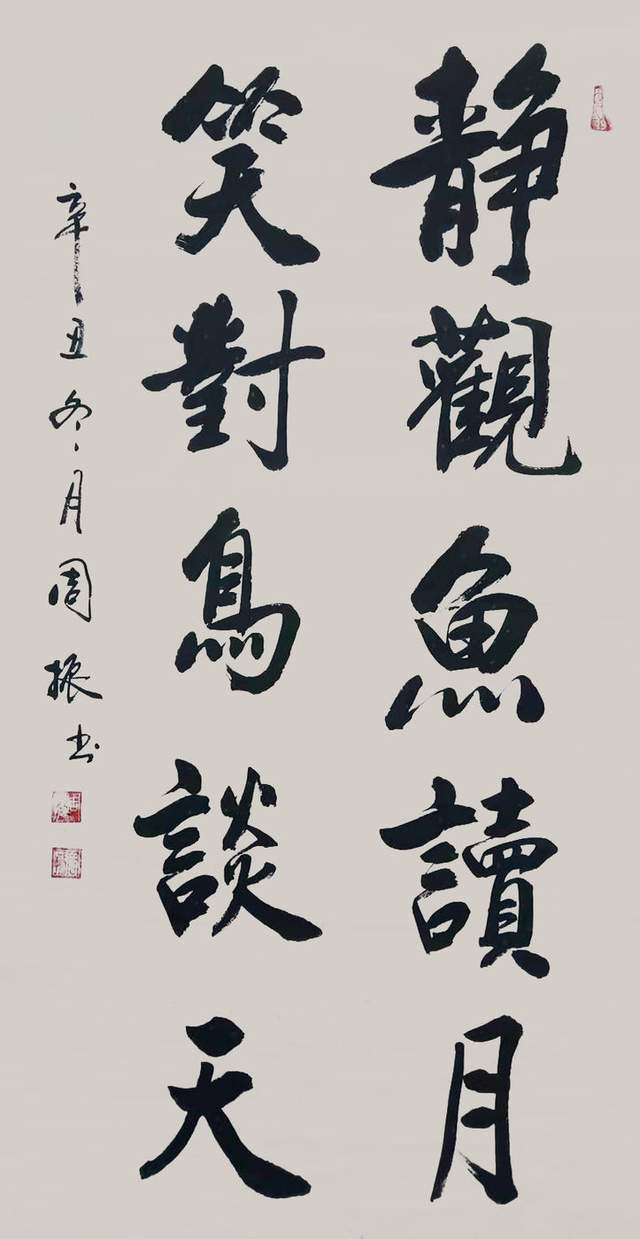 靜觀魚讀月
笑對鳥談天
辛丑冬月周振書